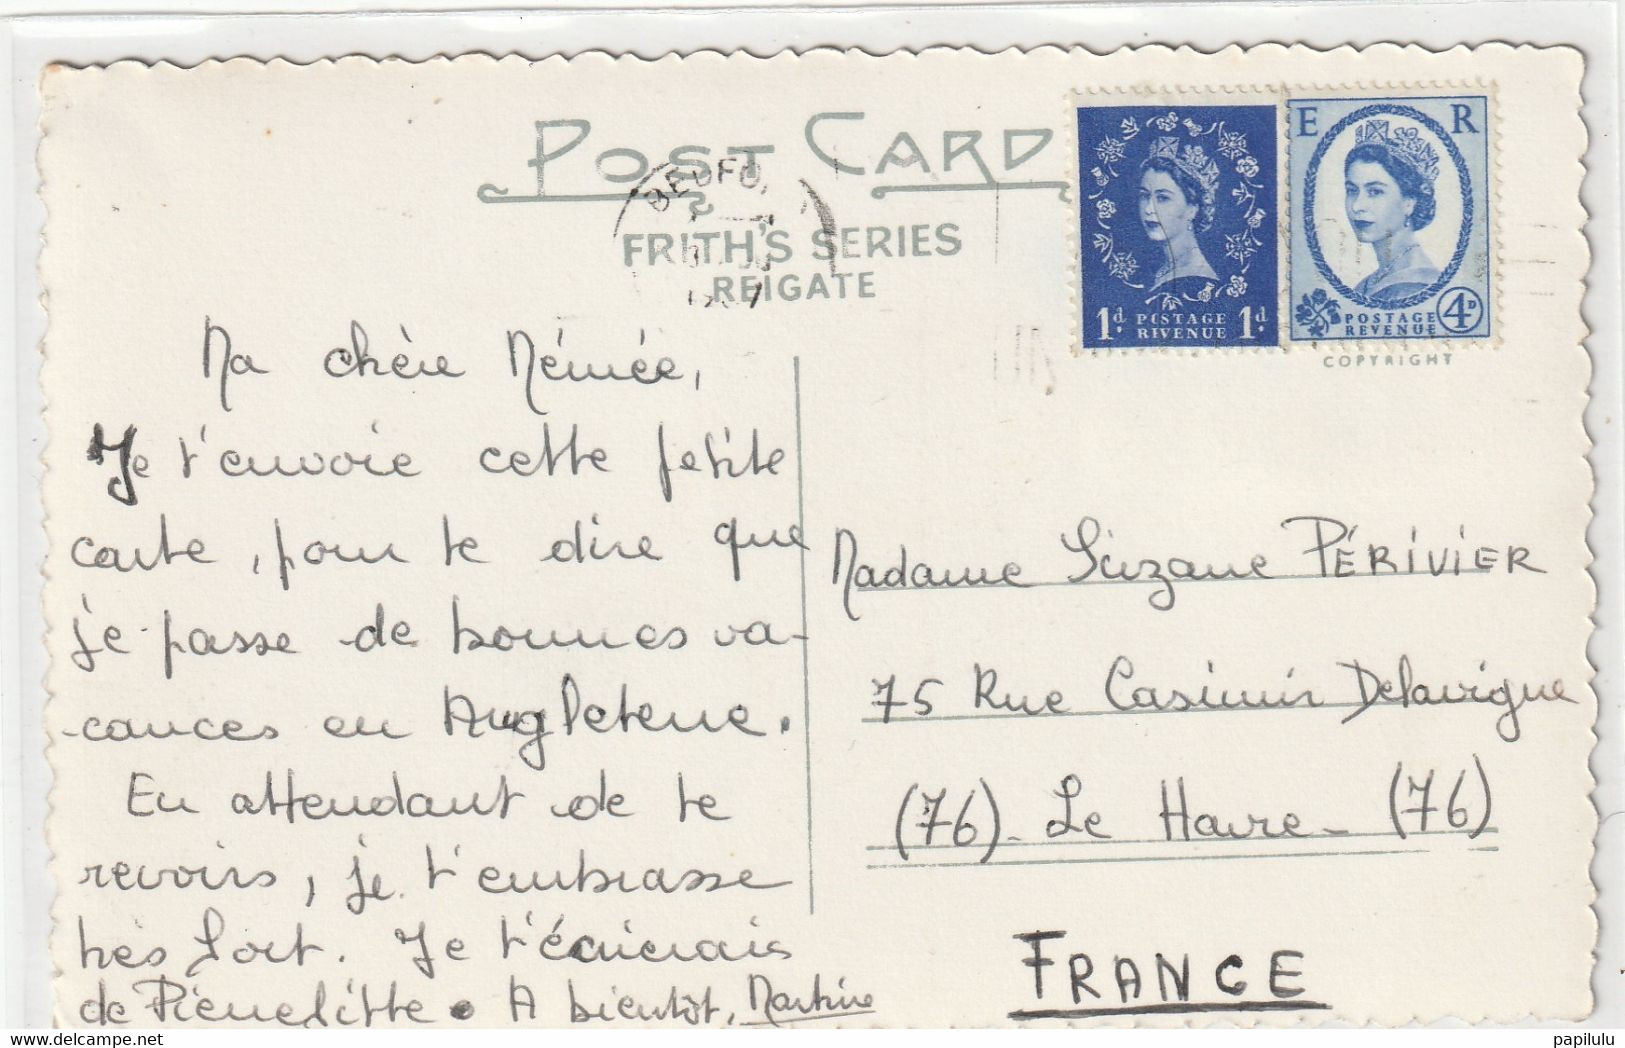 POST CARD
FRITH'S SERIES
REIGATE
BEDFO
E R
1d POSTAGE REVENUE 1d
POSTAGE REVENUE 4D
COPYRIGHT
Ma chère Mémée,
Je t'envoie cette petite
carte, pour te dire que
je passe de bonnes va-
-cances en Angleterre.
En attendant de te
revoirs, je t'embrasse
très fort. Je t'écrierais
de Pierrefitte. A bientôt, Martine
Madame Suzane PÉRIVIER
75 Rue Casimir Delavigne
(76) - Le Havre - (76)
FRANCE
delcampe.net
papilulu